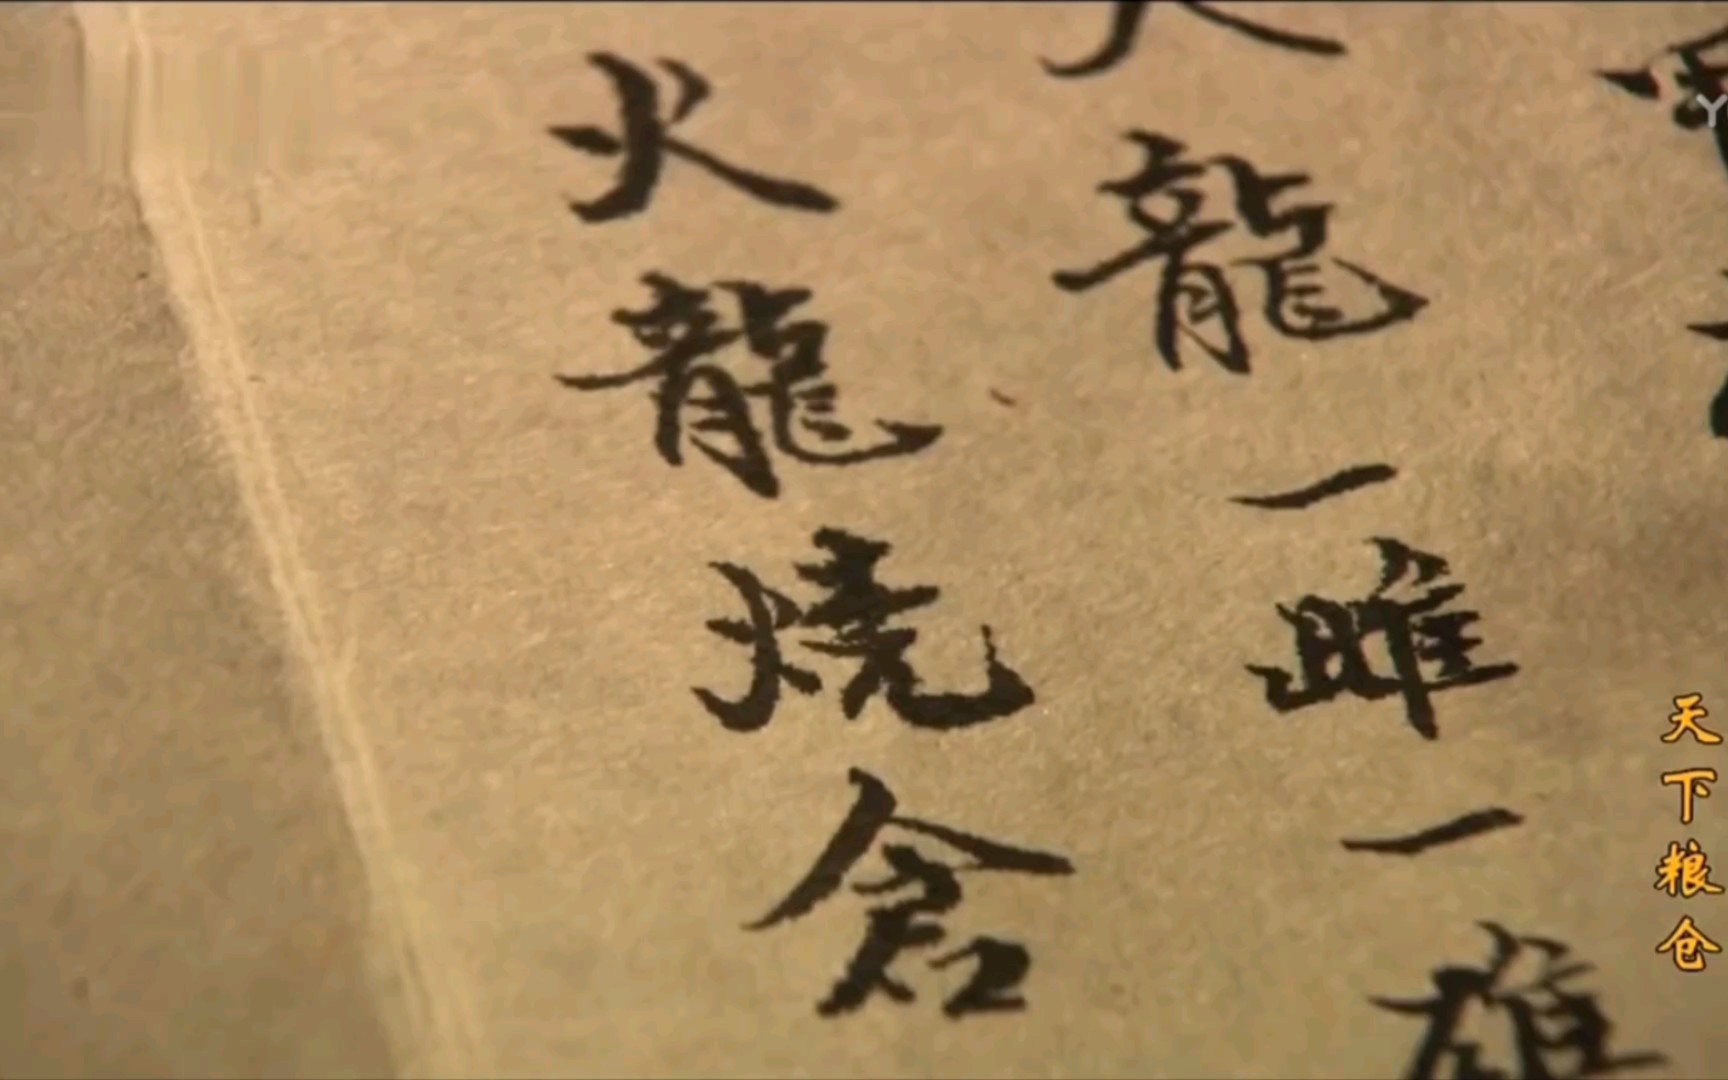 龍一雌一雄
火龍燒倉
天下粮仓